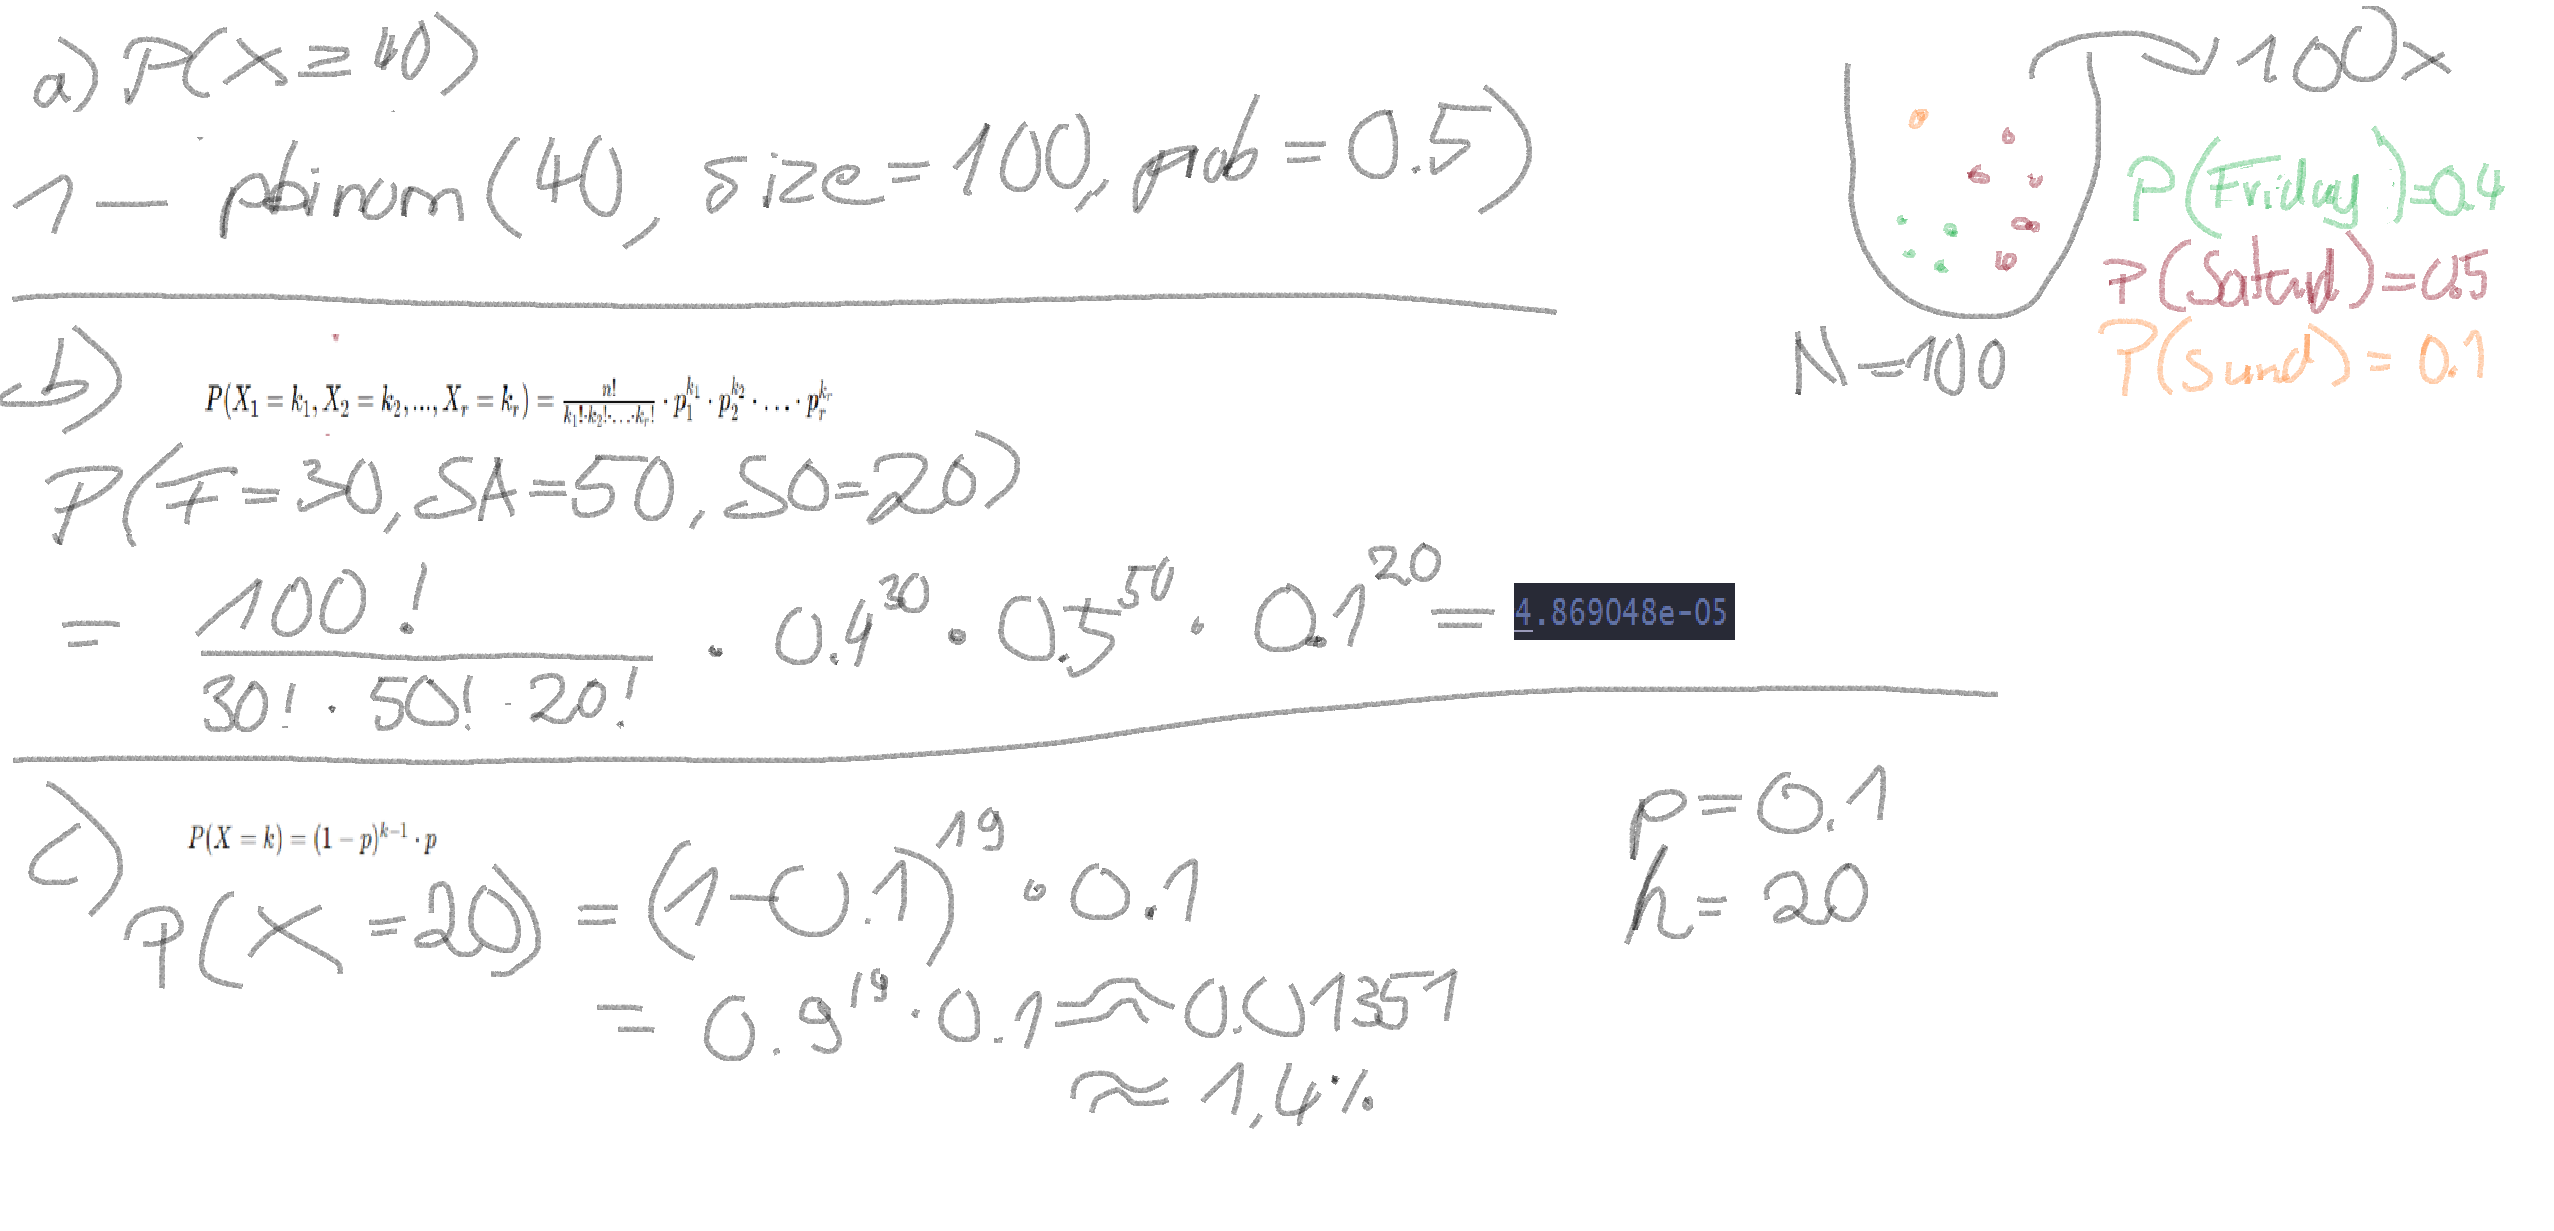 a) P(X ≥ 40)
1 - pbinom(40, size = 100, prob = 0.5)
→ 100x
P(Friday) = 0.4
P(Saturd) = 0.5
P(Sund) = 0.1
N = 100
b)
P(X₁ = k₁, X₂ = k₂, ..., Xᵣ = kᵣ) = n! / (k₁!·k₂!·...·kᵣ!) · p₁^k₁ · p₂^k₂ · ... · pᵣ^kᵣ
P(F = 30, SA = 50, SO = 20)
= 100! / (30! · 50! · 20!) · 0.4^30 · 0.5^50 · 0.1^20 = 4.869048e-05
c)
P(X = k) = (1 − p)^(k−1) · p
P(X = 20) = (1 - 0.1)^19 · 0.1
= 0.9^19 · 0.1 ≈ 0.01351
≈ 1,4%
p = 0.1
k = 20